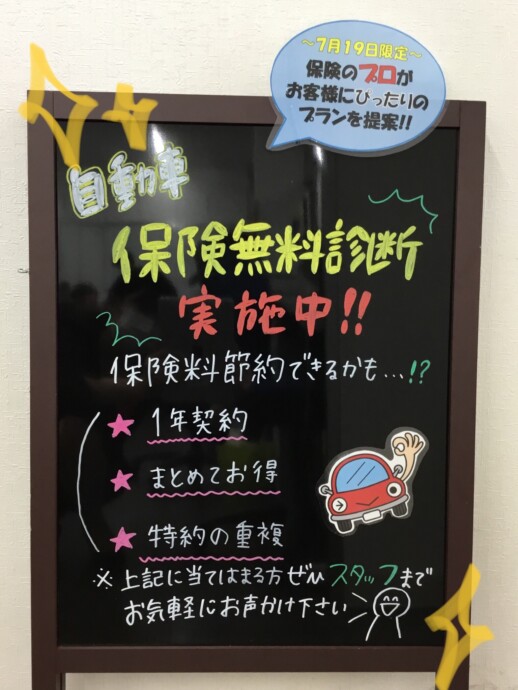 ～7月19日限定～
保険のプロが
お客様にぴったりの
プランを提案!!
自動車
保険無料診断
実施中!!
保険料節約できるかも…!?
★ 1年契約
★ まとめてお得
★ 特約の重複
※上記に当てはまる方ぜひスタッフまで
お気軽にお声かけ下さい